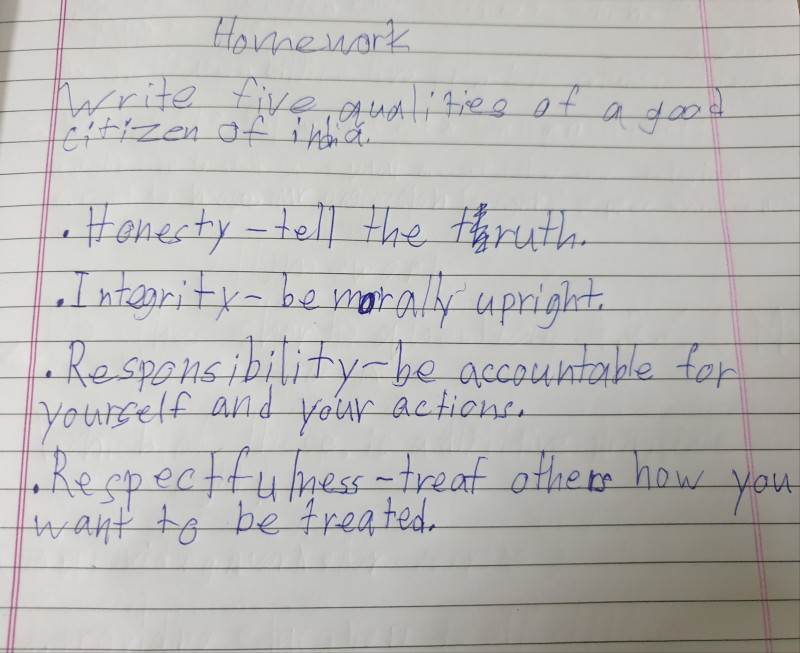 Homework
Write five qualities of a good
citizen of india.
. Honesty - tell the truth.
. Integrity - be morally upright.
. Responsibility - be accountable for
yourself and your actions.
. Respectfulness - treat others how you
want to be treated.